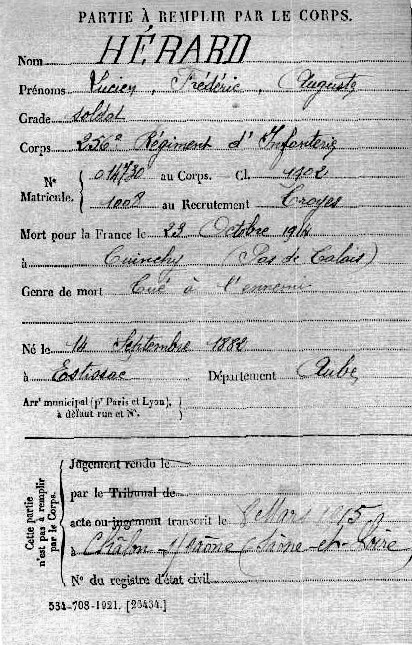 PARTIE À REMPLIR PAR LE CORPS.
Nom HÉRARD
Prénoms Lucien, Frédéric, Auguste
Grade soldat
Corps 256e Régiment d'Infanterie
Nº Matricule. { 014730 au Corps. Cl. 1902
1008 au Recrutement Troyes
Mort pour la France le 23 Octobre 1914
à Cuinchy (Pas de Calais)
Genre de mort Tué à l'ennemi
Né le 14 Septembre 1882
à Estissac Département Aube
Arrt municipal (pr Paris et Lyon), à défaut rue et Nº.
Cette partie n'est pas à remplir par le Corps.
Jugement rendu le
par le Tribunal de
acte ou jugement transcrit le 8 Mars 1915
à Châlon s/ Saône (Saône-et-Loire)
Nº du registre d'état civil
534-708-1921. [26434.]